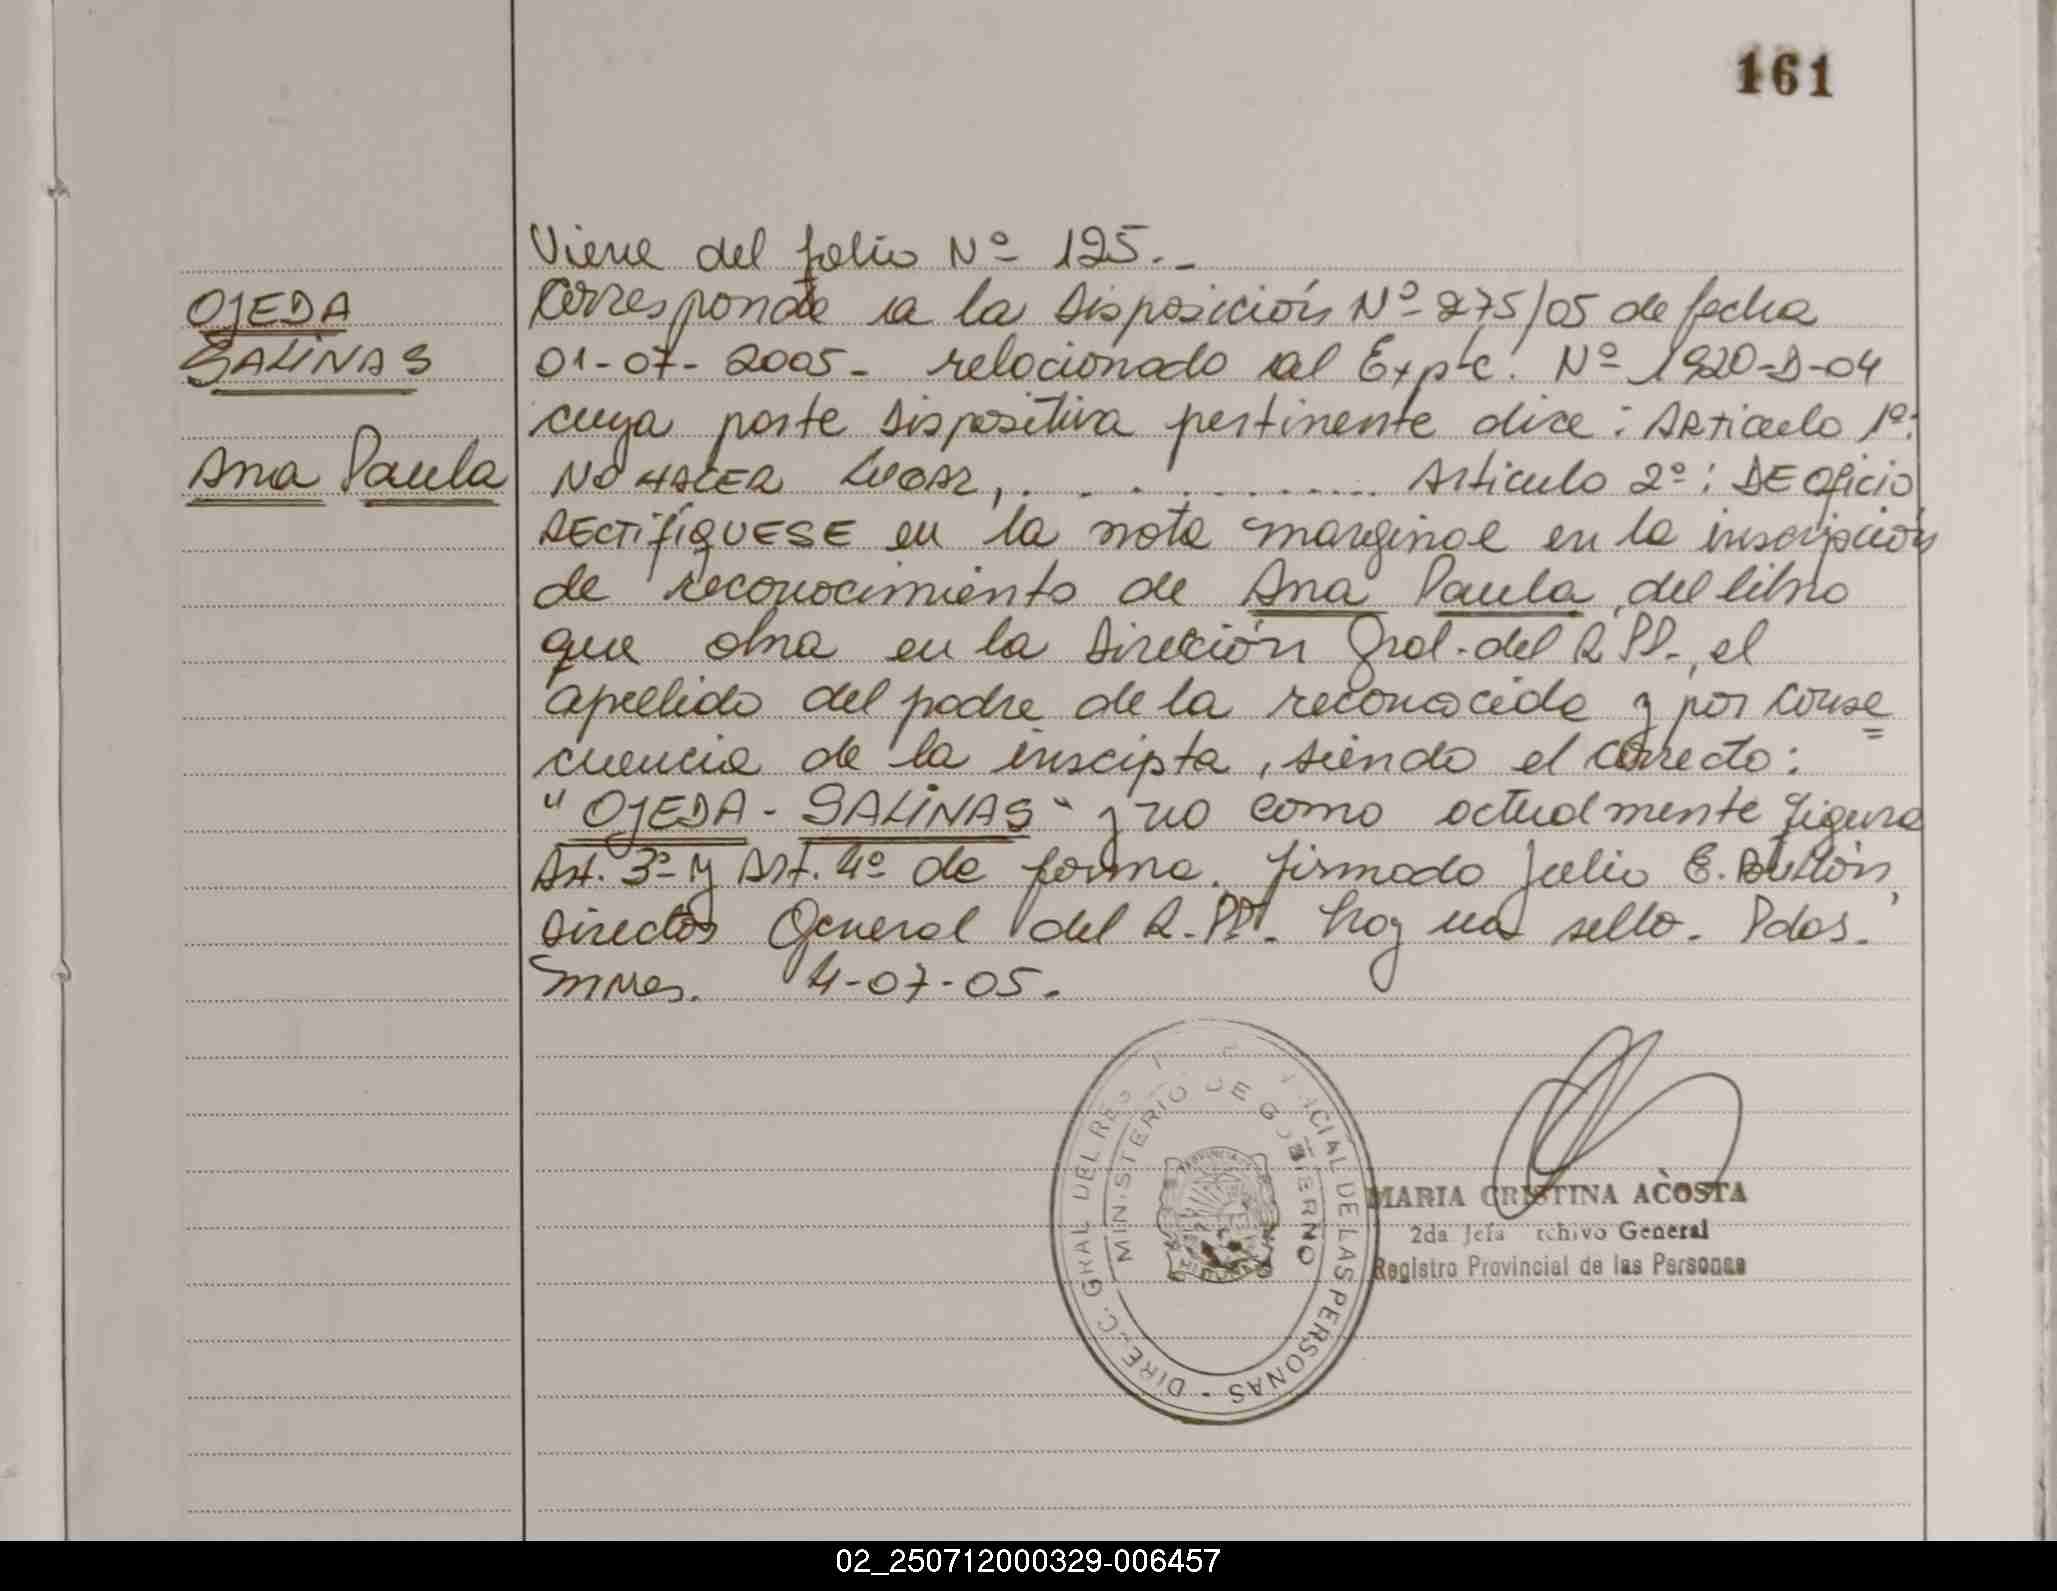 161
Viene del folio Nº 125.-
OJEDA
SALINAS
Ana Paula
Corresponde a la Disposición Nº 275/05 de fecha
01-07-2005- relacionado al Expte. Nº 1920-D-04
cuya parte Dispositiva pertinente dice: Articulo 1º:
NO HACER LUGAR, ............... Articulo 2º: DE Oficio
RECTIFÍQUESE en la nota marginal en la inscripción
de reconocimiento de Ana Paula, del libro
que obra en la Dirección Gral. del R.PP., el
apellido del padre de la reconocida y por conse
cuencia de la inscipta, siendo el correcto:
"OJEDA - SALINAS" y no como actualmente figura
Art. 3º y Art. 4º de forma. firmado Julio E.
Director General del R.PP. hay un sello. Pdas.
Mnes. 4-07-05.
MINISTERIO DE GOBIERNO
DIRECC. GRAL DEL REG CIAL DE LAS PERSONAS -
MARIA CRISTINA ACOSTA
2da Jefa rchivo General
Registro Provincial de las Personas
02_250712000329-006457